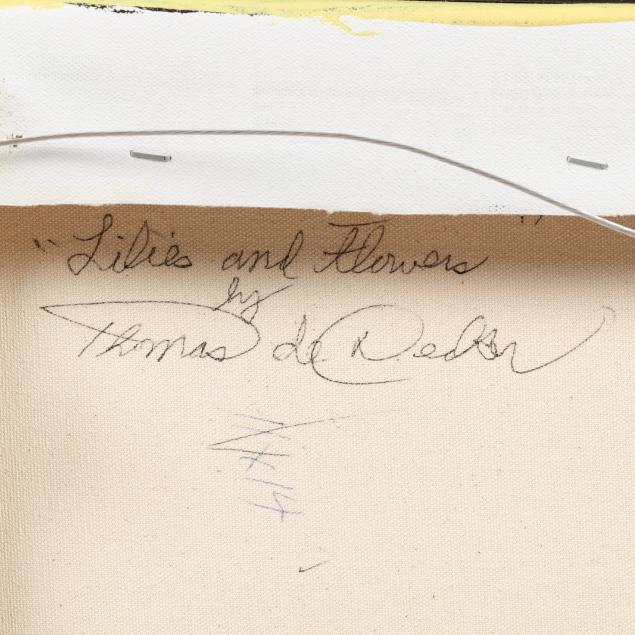 "Lilies and Flowers"
by
Thomas de Decker